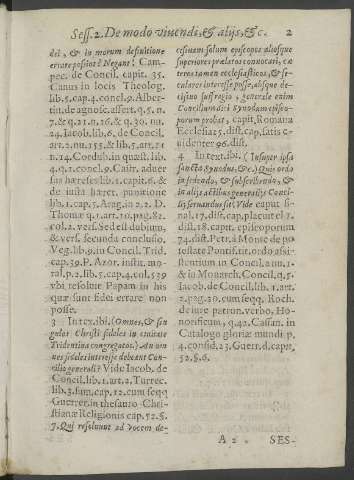 Sess. 2. De modo viuendi, & alijs, &c. 2
dei, & in morum definitione
errare possint? Negant? Cam-
pec. de Concil. capit. 35.
Canus in locis Theolog.
lib. 5. cap. 4. concl. 9. Alber-
tin. de agnosc. assert. q. 5. n.
7. & q. 21. n. 26. & q. 30. nu.
24. Iacob. lib. 6. de Concil.
art. 2. nu. 155. & lib. 5. art. 21
n. 14. Cordub. in quæst. lib.
4. q. 1. concl. 9. Castr. aduer
sus hæreses lib. 1. capit. 6. &
de iusta hæret. punitione
lib. 1. cap. 5. Arag. in 2. 2. D.
Thomæ q. 1. art. 10. pag. 82.
col. 2. vers. Sed est dubium,
& vers. secunda conclusio.
Veg. lib. 9. in Concil. Trid.
cap. 39. P. Azor. instit. mo-
ral. p. 2. lib. 5. cap. 4. col. 539
vbi resoluit Papam in his
quæ sunt fidei errare non
posse.
3 In tex. ibi. (Omnes, & sin
gulos Christi fideles in ciuitate
Tridentina congregatos.) An om
nes fideles interesse debeant Con-
cilio generali? Vide Iacob. de
Concil. lib. 1. art. 2. Turrec.
lib. 3. sum. cap. 12. cum seqq
Guerrer. in thesauro Chri-
stianæ Religionis cap. 52. §.
7. Qui resoluunt ad vocem de-
cisiuam solum episcopos aliosque
superiores prælatos conuocari, cæ
teros tamen ecclesiasticos, & se-
culares interesse posse, absque de-
cisiuo suffragio, generale enim
Concilium dici Synodum episco-
porum probat, capit. Romana
Ecclesia 5. dist. cap. satis e-
uidenter 96. dist.
4 In text. ibi. (Insuper ipsa
sancta Synodus, &c.) Quis ordo
in sedendo, & subscribendo, &
in alijs actibus generalis Conci-
lij seruandus sit? Vide caput si-
nal. 17. dist. cap. placuit el 1.
dist. 18. capit. episcoporum
74. dist. Petr. à Monte de po
testate Pontif. tit. ordo assi-
stentium in Concil. 2. nu. 1.
& in Monarch. Concil. q. 5.
Iacob. de Concil. lib. 1. art.
2. pag. 20. cum seqq. Roch.
de iure patron. verbo, Ho-
norificum, q. 42. Cassan. in
Catalogo gloriæ mundi p.
4. consid. 23. Guerr. d. capit.
52. §. 6.
A 2 SES-